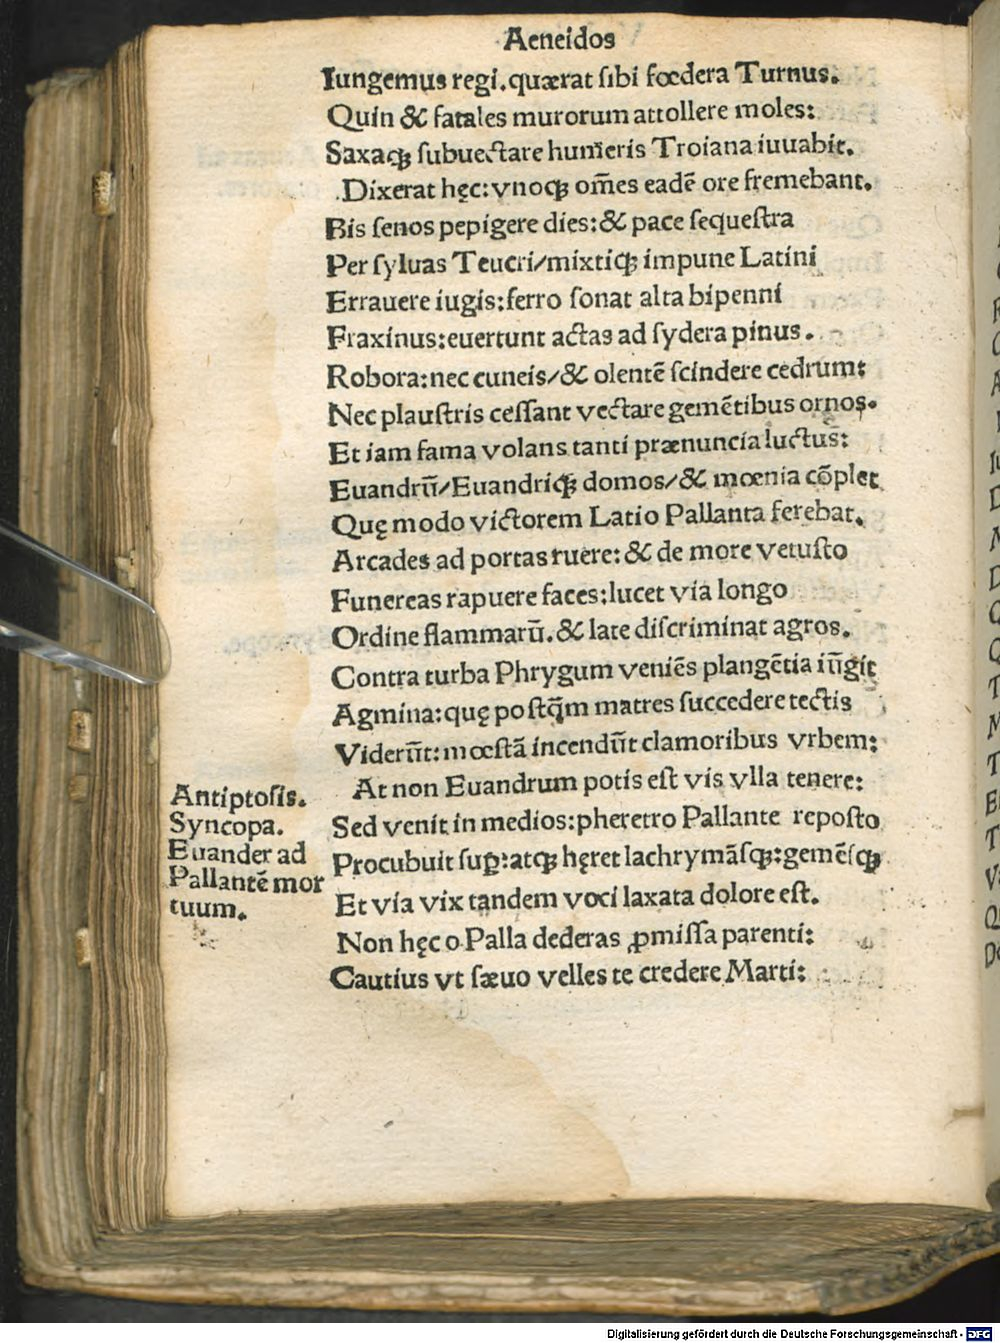 Aeneidos
Iungemus regi. quærat ſibi fœdera Turnus.
Quin & fatales murorum attollere moles:
Saxaqꝫ ſubuectare humeris Troiana iuuabit.
Dixerat hęc: vnoqꝫ om̄es eadē ore fremebant.
Bis ſenos pepigere dies: & pace ſequeſtra
Per ſyluas Teucri/mixtiqꝫ impune Latini
Errauere iugis: ferro ſonat alta bipenni
Fraxinus: euertunt actas ad ſydera pinus.
Robora: nec cuneis/& olentē ſcindere cedrum:
Nec plauſtris ceſſant vectare gemētibus ornos.
Et iam fama volans tanti prænuncia luctus:
Euandrū/Euandriqꝫ domos/& mœnia cōplet
Quę modo victorem Latio Pallanta ferebat.
Arcades ad portas ruere: & de more vetuſto
Funereas rapuere faces: lucet via longo
Ordine flammarū. & late diſcriminat agros.
Contra turba Phrygum veniēs plangētia iūgit
Agmina: quę poſtq̄m matres ſuccedere tectis
Viderūt: mœſtā incendūt clamoribus vrbem:
At non Euandrum potis eſt vis vlla tenere:
Sed venit in medios: pheretro Pallante repoſto
Procubuit ſuꝑ: atqꝫ hęret lachrymāſqꝫ: gemēſqꝫ
Et via vix tandem voci laxata dolore eſt.
Non hęc o Palla dederas ꝓmiſſa parenti:
Cautius vt ſæuo velles te credere Marti:
Antiptoſis.
Syncopa.
Euander ad
Pallantē mor
tuum.
Digitalisierung gefördert durch die Deutsche Forschungsgemeinschaft - DFG